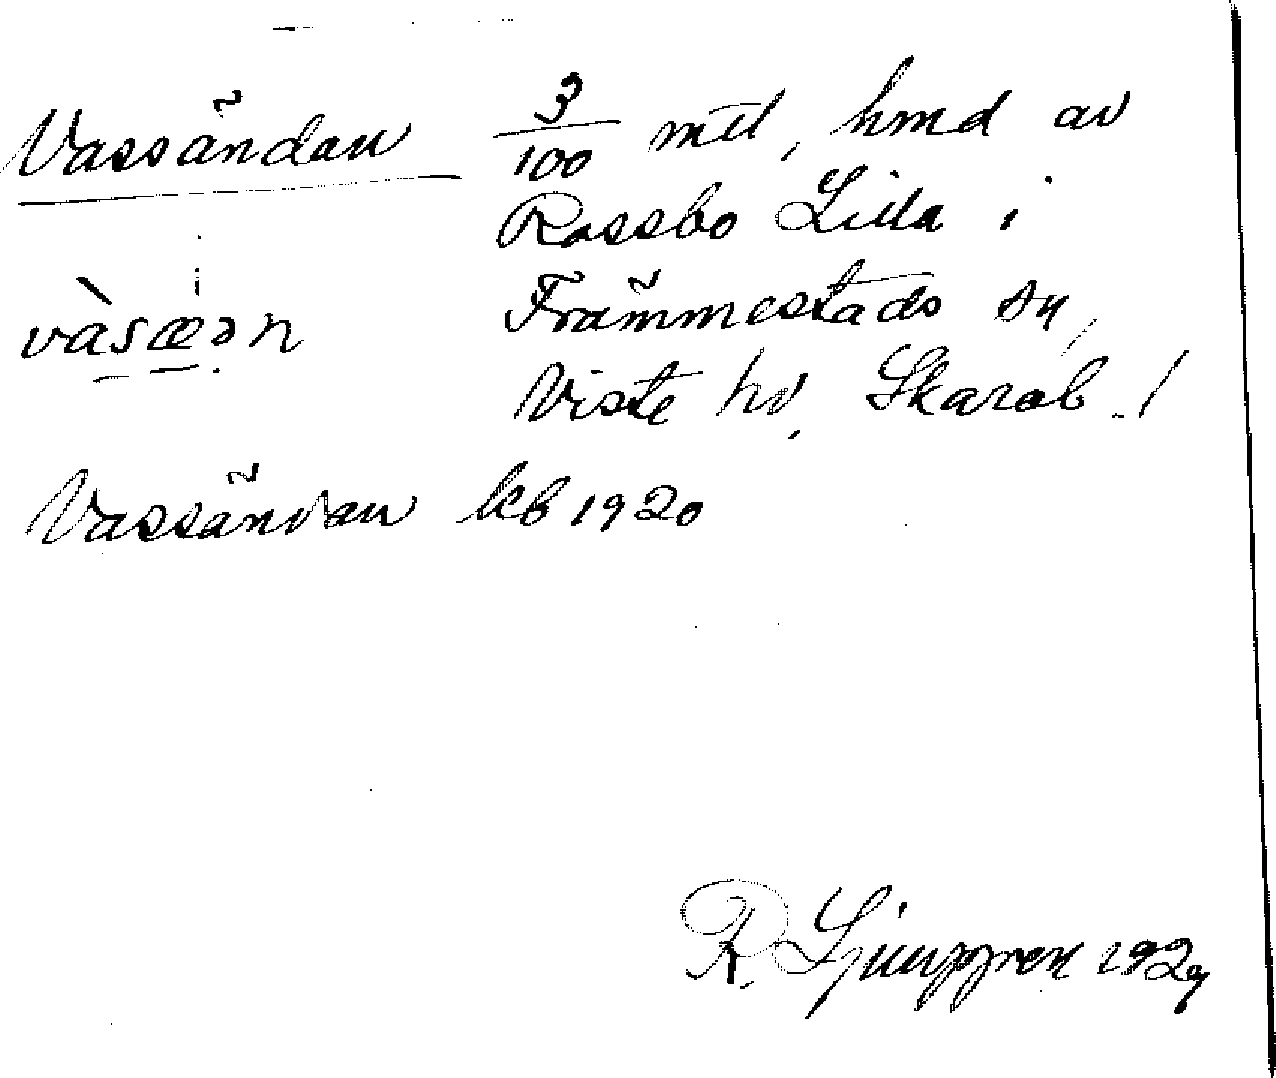 Vassändan 3/100 mtl, hmd av
Rassbo Lilla i
vàsæən Främmestads sn,
Viste hd, Skarab. l
Vassändan kb 1920
R. Ljunggren 1929